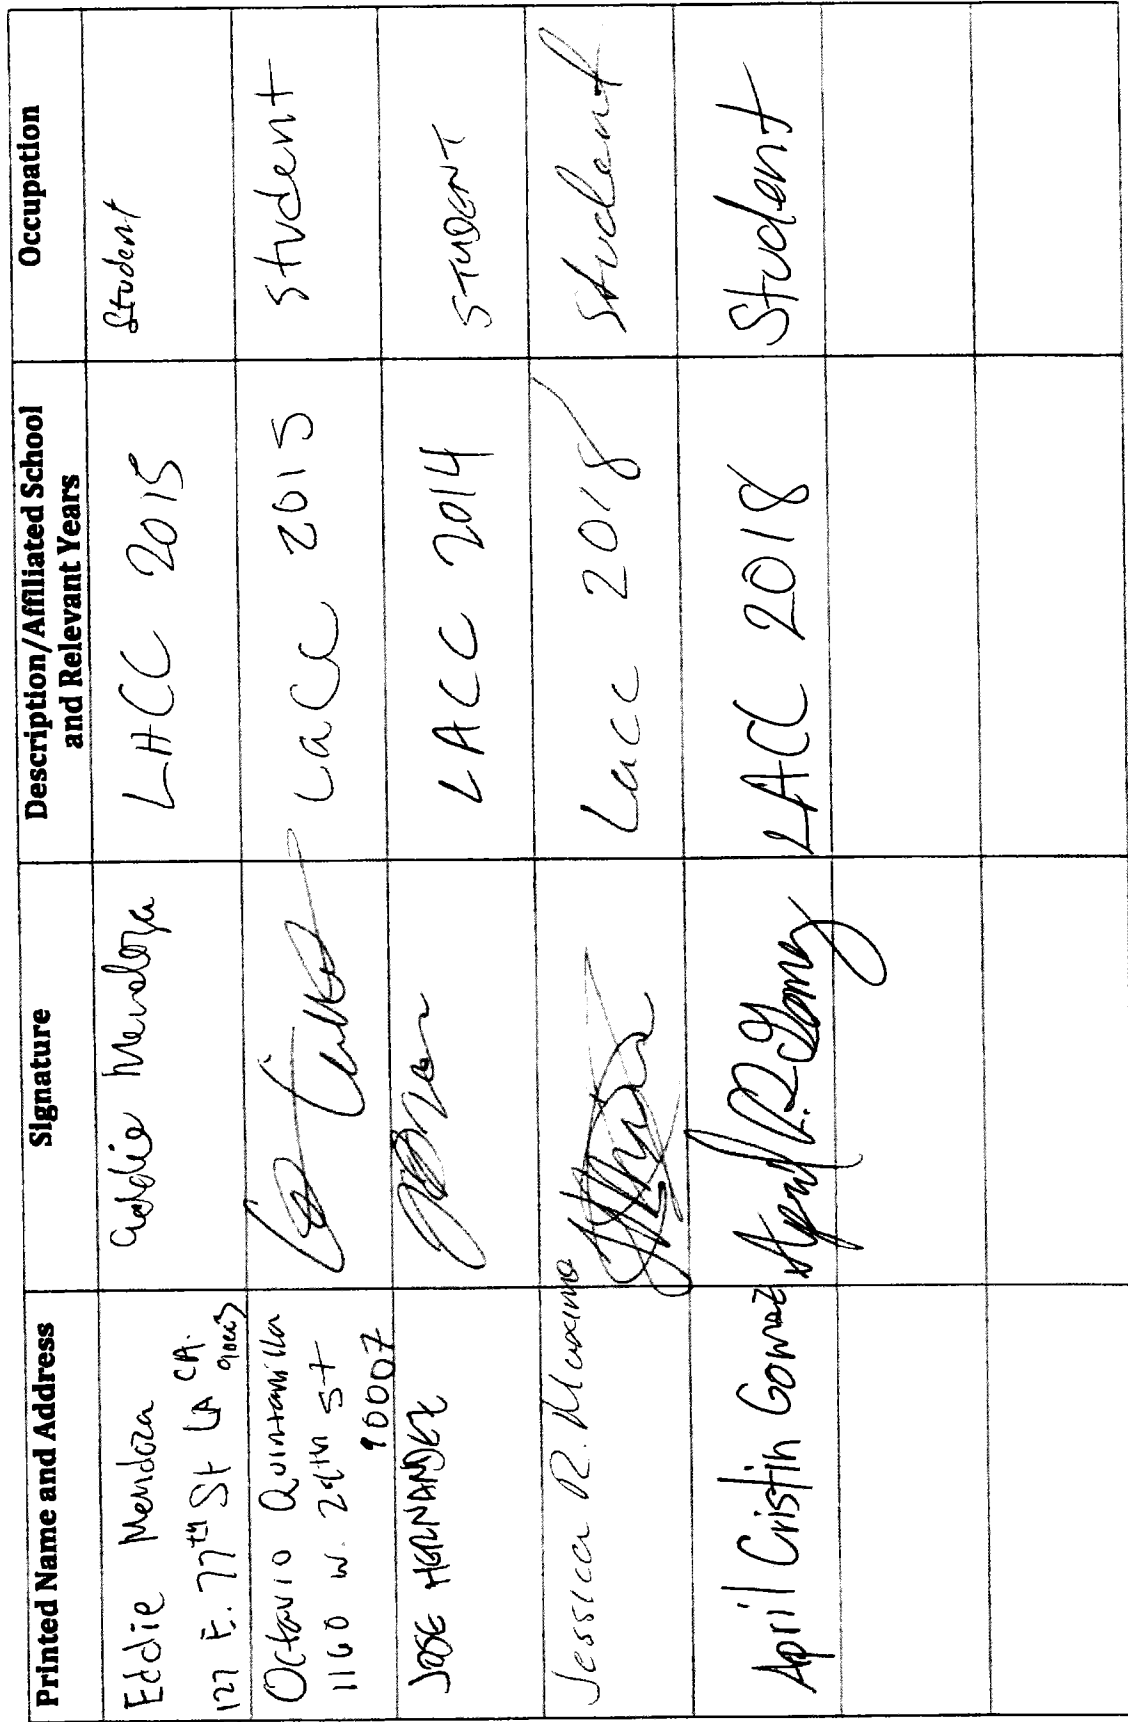 Printed Name and Address
Signature
Description/Affiliated School
and Relevant Years
Occupation
Eddie Mendoza
127 E. 77th St LA CA.
Eddie Mendoza
LACC 2015
Student
Octavio Quintanilla
1160 W. 29th St
90007
LaCC 2015
Student
JOSE HERNANDEZ
LACC 2014
STUDENT
Jessica R. Maximo
Lacc 2018
Student
April Cristin Gomez
April R. Gomez
LACC 2018
Student